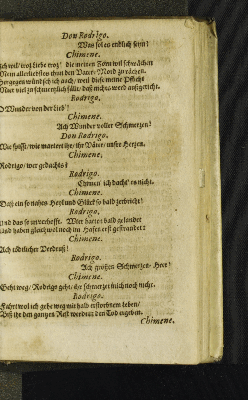 Don Rodrigo.
Was sol es endlich seyn?
Chimene.
Ich wil/ troz Liebe troz/ die meinen Zorn wil schwächen
Mein allerliebstes thun den Vater-Mord zu rächen.
hergegen wünsch ich auch/ weil diese meine Pflicht
Mier viel zu schmerzlich fällt/ daß nichts werd außgericht.
Rodrigo.
O Wunder von der lieb'!
Chimene.
Ach Wunder voller Schmerzen!
Don Rodrigo.
Wie spisst/ wie martert ihr/ ihr Väter/ unsre Herzen.
Chimene.
Rodrigo/ wer gedachts?
Rodrigo.
Chimen' ich dacht' es nicht.
Chimene.
Daß ein so nahes Heyl und Glükk so bald zerbricht!
Rodrigo.
Und das so unverhofft. Wier waren bald gelendet
und haben gleichwol noch im Hafen erst gestrandet?
Chimene.
Ach tödtlicher Verdruß!
Rodrigo.
Ach großes Schmerzen-Heer!
Chimene.
Geht weg/ Rodrigo geht/ ihr schmerzet mich noch mehr.
Rodrigo.
Fahrt wol ich gehe weg mit halb erstorbnem leben/
Biß ihr den ganzen Rest werdet den Tod ergeben.
Chimene.